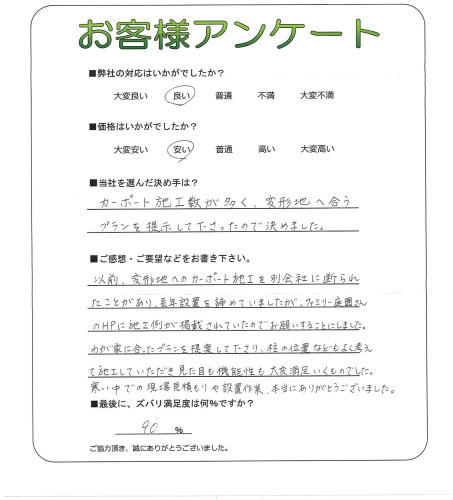 お客様アンケート
■弊社の対応はいかがでしたか?
大変良い 良い 普通 不満 大変不満
■価格はいかがでしたか?
大変安い 安い 普通 高い 大変高い
■当社を選んだ決め手は?
カーポート施工数が多く、変形地へ合う
プランを提示して下さったので決めました。
■ご感想・ご要望などをお書き下さい。
以前、変形地へのカーポート施工を別会社に断られ
たことがあり、長年設置を諦めていましたが、ファミリー庭園さん
のHPに施工例が掲載されていたのでお願いすることにしました。
わが家に合ったプランを提案して下さり、柱の位置などもよく考え
て施工していただき見た目も機能性も大変満足いくものでした。
寒い中での現場見積もりや設置作業、本当にありがとうございました。
■最後に、ズバリ満足度は何%ですか?
90 %
ご協力頂き、誠にありがとうございました。